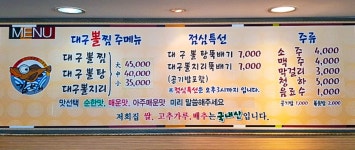 MENU
대구뽈찜 주메뉴
대구뽈찜
대구뽈탕
대구뽈지리
大 45,000
中 40,000
小 35,000
맛선택 순한맛, 매운맛, 아주매운맛 미리 말씀해주세요
점심특선
대구뽈탕뚝배기 7,000
대구뽈지리뚝배기 7,000
(공기밥포함)
*점심특선은 오후3시까지 입니다.
주류
소주 4,000
맥주 4,000
막걸리 3,000
청하 5,000
음료수 1,000
공기밥 1,000 볶음밥 2,000
저희집 쌀, 고추가루, 배추는 국내산입니다.